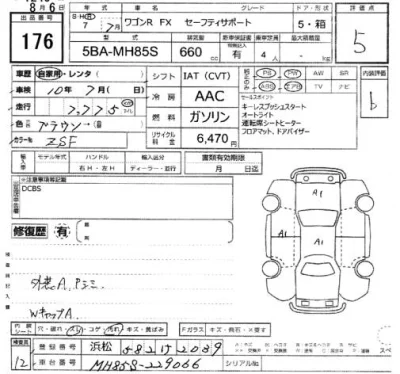 8月6日
出品番号
176
S・H(R)
7年7月
ワゴンR FX セーフティサポート
グレード
ドア・形状
5・箱
評価点
5
5BA-MH85S
排気量
660 cc
有
乗車定員
4 人
最大積載量
車歴 自家用・レンタ
車検 10年7月( )
走行 7,775
色 ブラウン
カラーNo. ZSF
シフト IAT (CVT)
冷房 AAC
燃料 ガソリン
リサイクル料金 6,470 円
純正のみ
PS PW AW SR
ABS エアB TV ナビ
内装評価
b
セールスポイント
キーレスプッシュスタート
オートライト
運転席シートヒーター
フロアマット、ドアバイザー
輸入車
モデル年式
ハンドル
右H・左H
輸入車区分
ディーラー・並行
書類有効期限
月 日迄
注意事項等記載
DCBS
修復歴 有
検査員記入欄
外装A.Pミミ
WキャップA
A1
A1 A1
内装・シート
穴・破れ・スレ・コゲ・汚れ・キズ・黄ばみ
Fガラス
キズ・飛石・×要す
検査員
12
登録番号 浜松 582 け 2039
車台番号 MH85S-229066
シリアルNo.